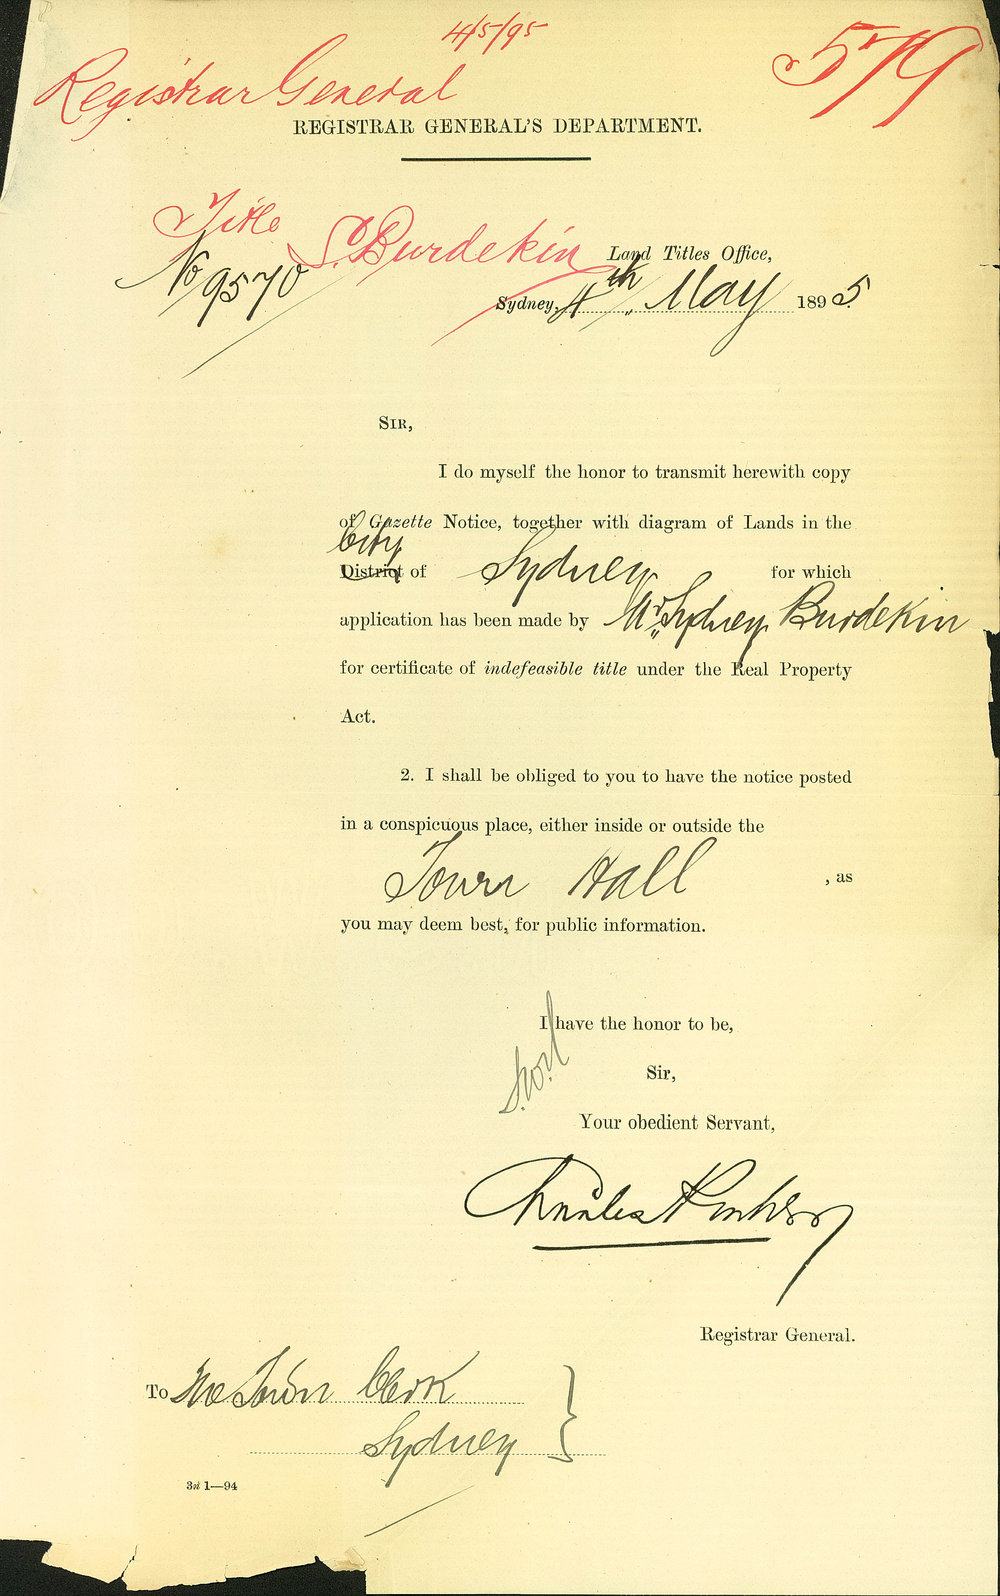 4/5/95
579
Registrar General
REGISTRAR GENERAL'S DEPARTMENT.
Title
S. Burdekin
No 9570
Land Titles Office,
Sydney, 4th May 1895.
SIR,
I do myself the honor to transmit herewith copy
of Gazette Notice, together with diagram of Lands in the
City
District of Sydney for which
application has been made by Mr. Sydney Burdekin
for certificate of indefeasible title under the Real Property
Act.
2. I shall be obliged to you to have the notice posted
in a conspicuous place, either inside or outside the
Town Hall , as
you may deem best, for public information.
I have the honor to be,
Sir,
Your obedient Servant,
Charles
Registrar General.
To The Town Clerk
Sydney
3a 1—94